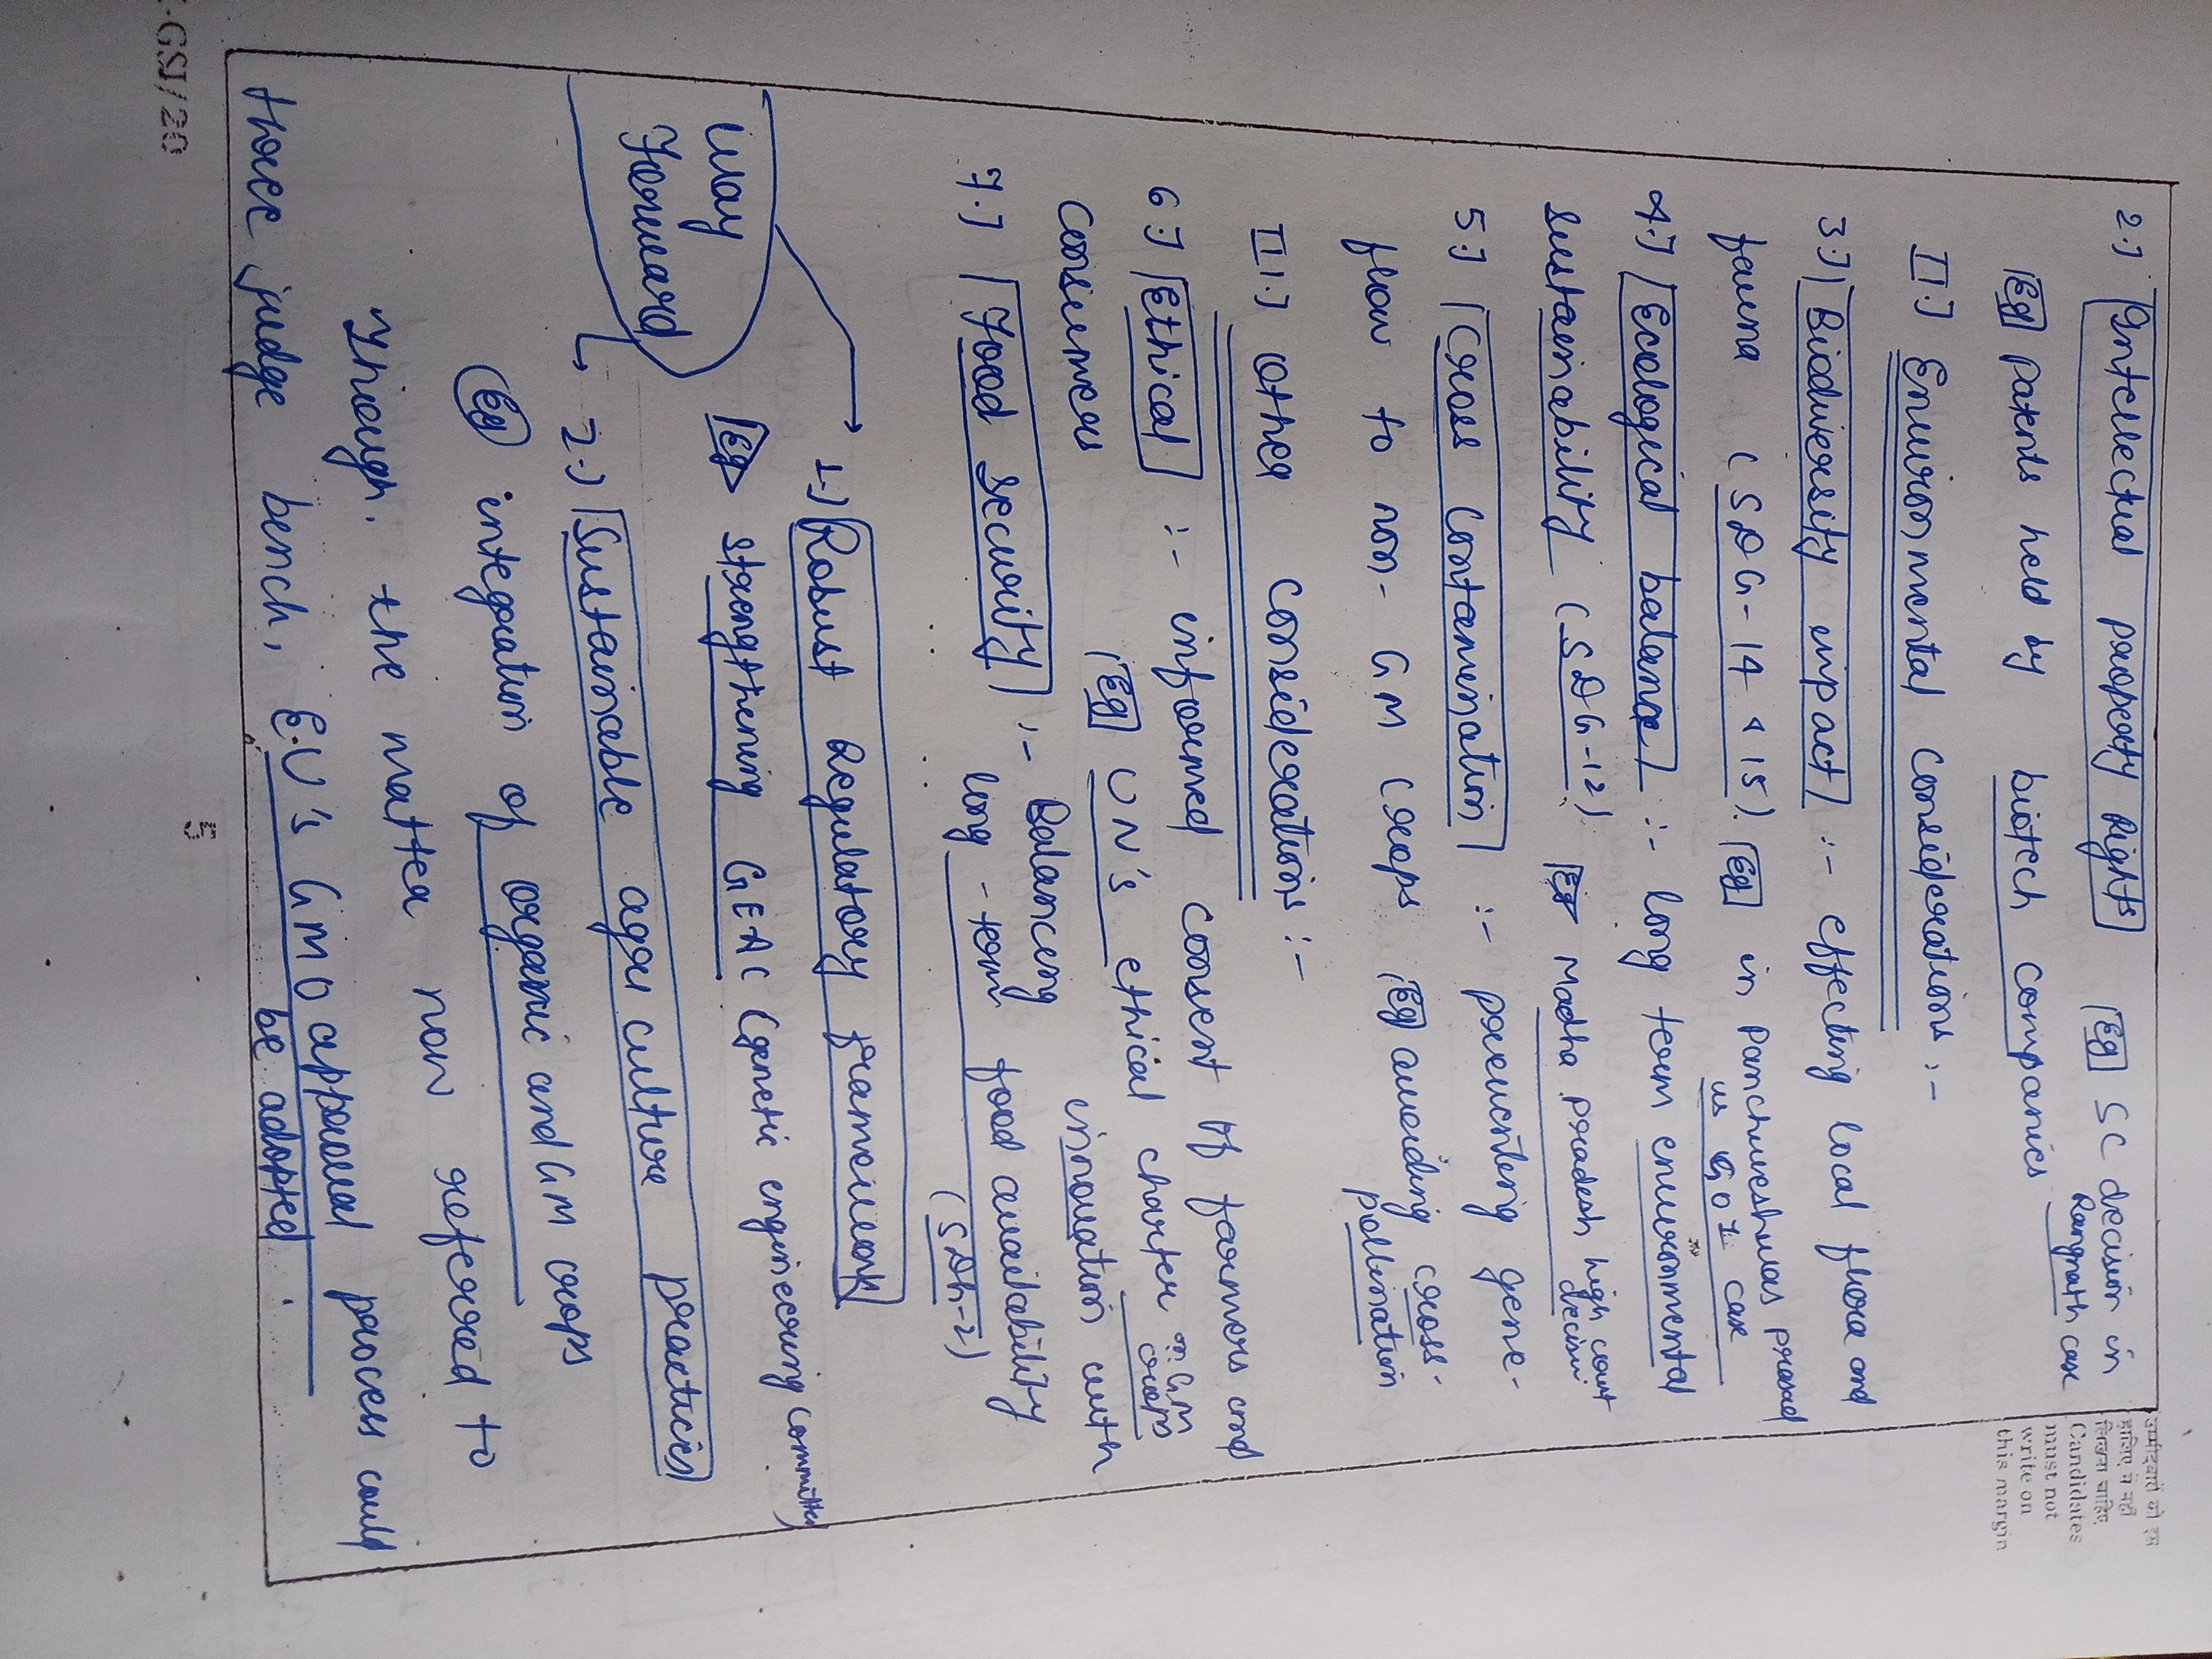 उम्मीदवारों को इस
हाशिए में नहीं
लिखना चाहिए
Candidates
must not
write on
this margin
2.) Intellectual property rights Eg SC decision in
Rangnath case
Eg patents held by biotech companies
II.) Environmental considerations :-
3.) Biodiversity impact :- effecting local flora and
fauna (SDG-14 & 15). Eg in Panchueshwas prasad
vs GOI case
4.) Ecological balance :- long term environmental
sustainability (SDG-12) Eg Madha pradesh high court
decision
5.) Cross contamination :- preventing gene-
flow to non-GM crops Eg avoiding cross-
pollination
III.) other considerations :-
6.) Ethical :- informed consent of farmers and
consumers Eg UN's ethical charter on GM
crops
7.) Food security :- Balancing innovation with
long-term food availability
(SDG-2)
Way
Forward
1.) Robust Regulatory framework
Eg strengthening GEAC (genetic engineering committee)
2.) Sustainable agri culture practices
Eg integration of organic and GM crops
Though the matter now referred to
three judge bench, E.U's GMO approval process could
be adopted.
-GSI/20
5